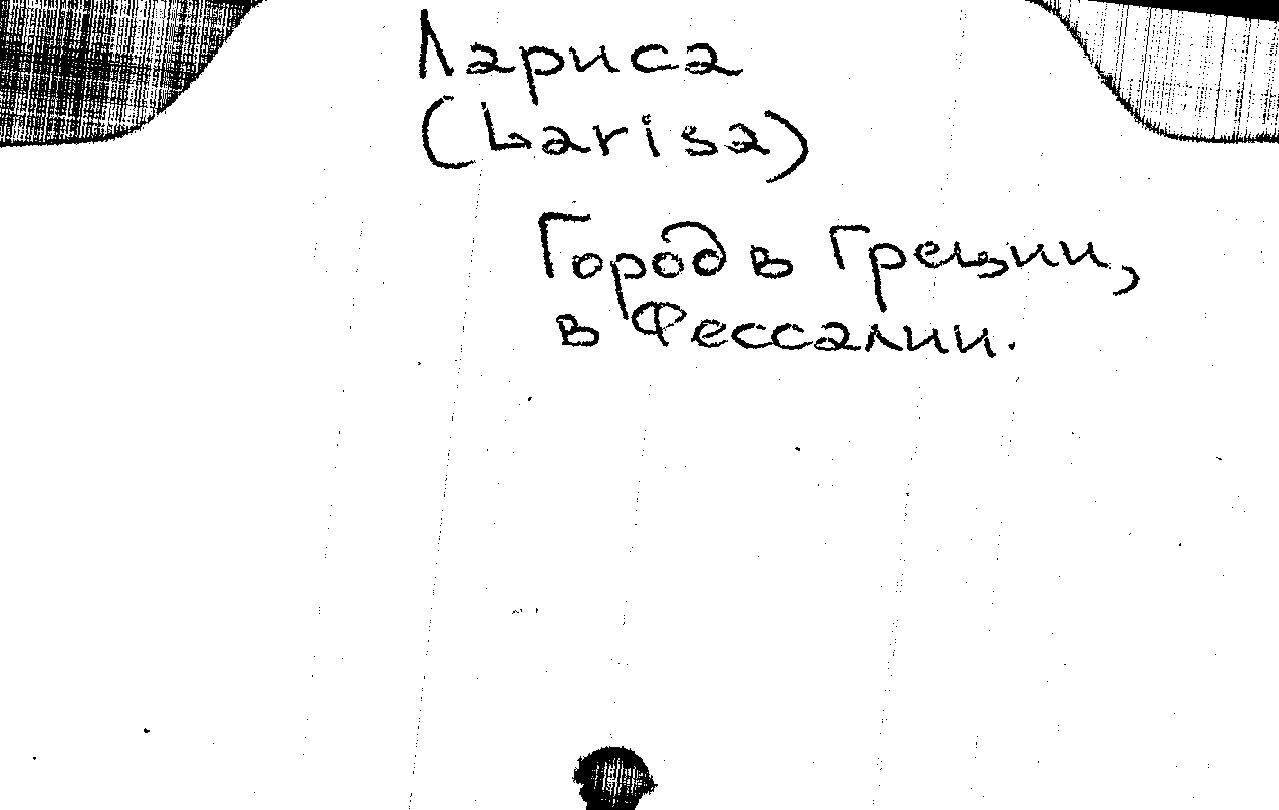 Лариса
(Larisa)
Город в Греции,
в Фессалии.